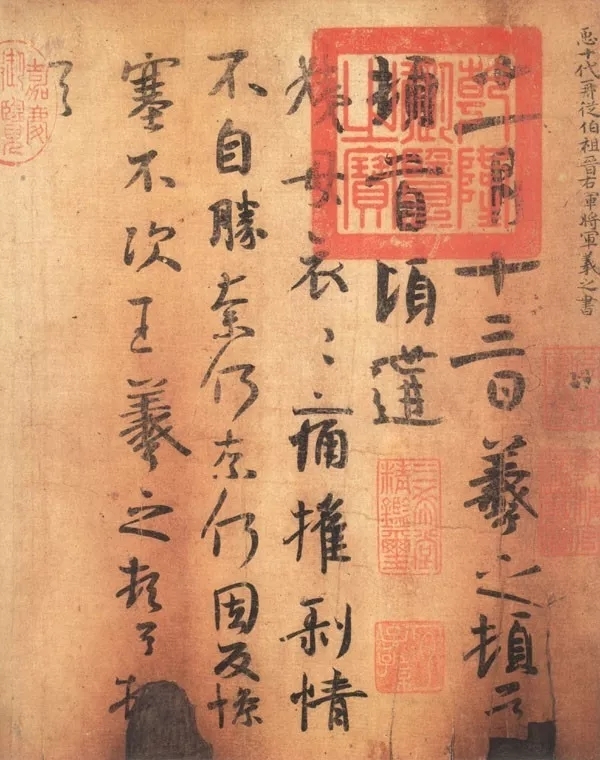 十代再從伯祖晉右軍將軍羲之書
十一月十三日羲之頓首
頓首頃遘
姨母哀〻痛摧剝情
不自勝奈何奈何因反慘
塞不次王羲之頓首頓
首
乾隆御覽之寶
三希堂精鑑璽
宜子孫
嘉慶御覽